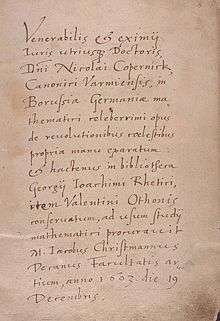 Venerabilis & eximij
Iuris utriusq Doctoris
Dni Nicolai Copernick,
Canonici Varmiensis, in
Borussia Germaniæ ma-
thematici celeberrimi opus
de revolutionibus cœlestibus
propria manu exaratum
& hactenus in bibliotheca
Georgij Ioachimi Rhetici,
item Valentini Othonis
conservatum, ad usum studij
mathematici procuravit
M. Iacobus Christmannus
Decanus Facultatis ar-
tium, anno 1603 die 19
Decembris.